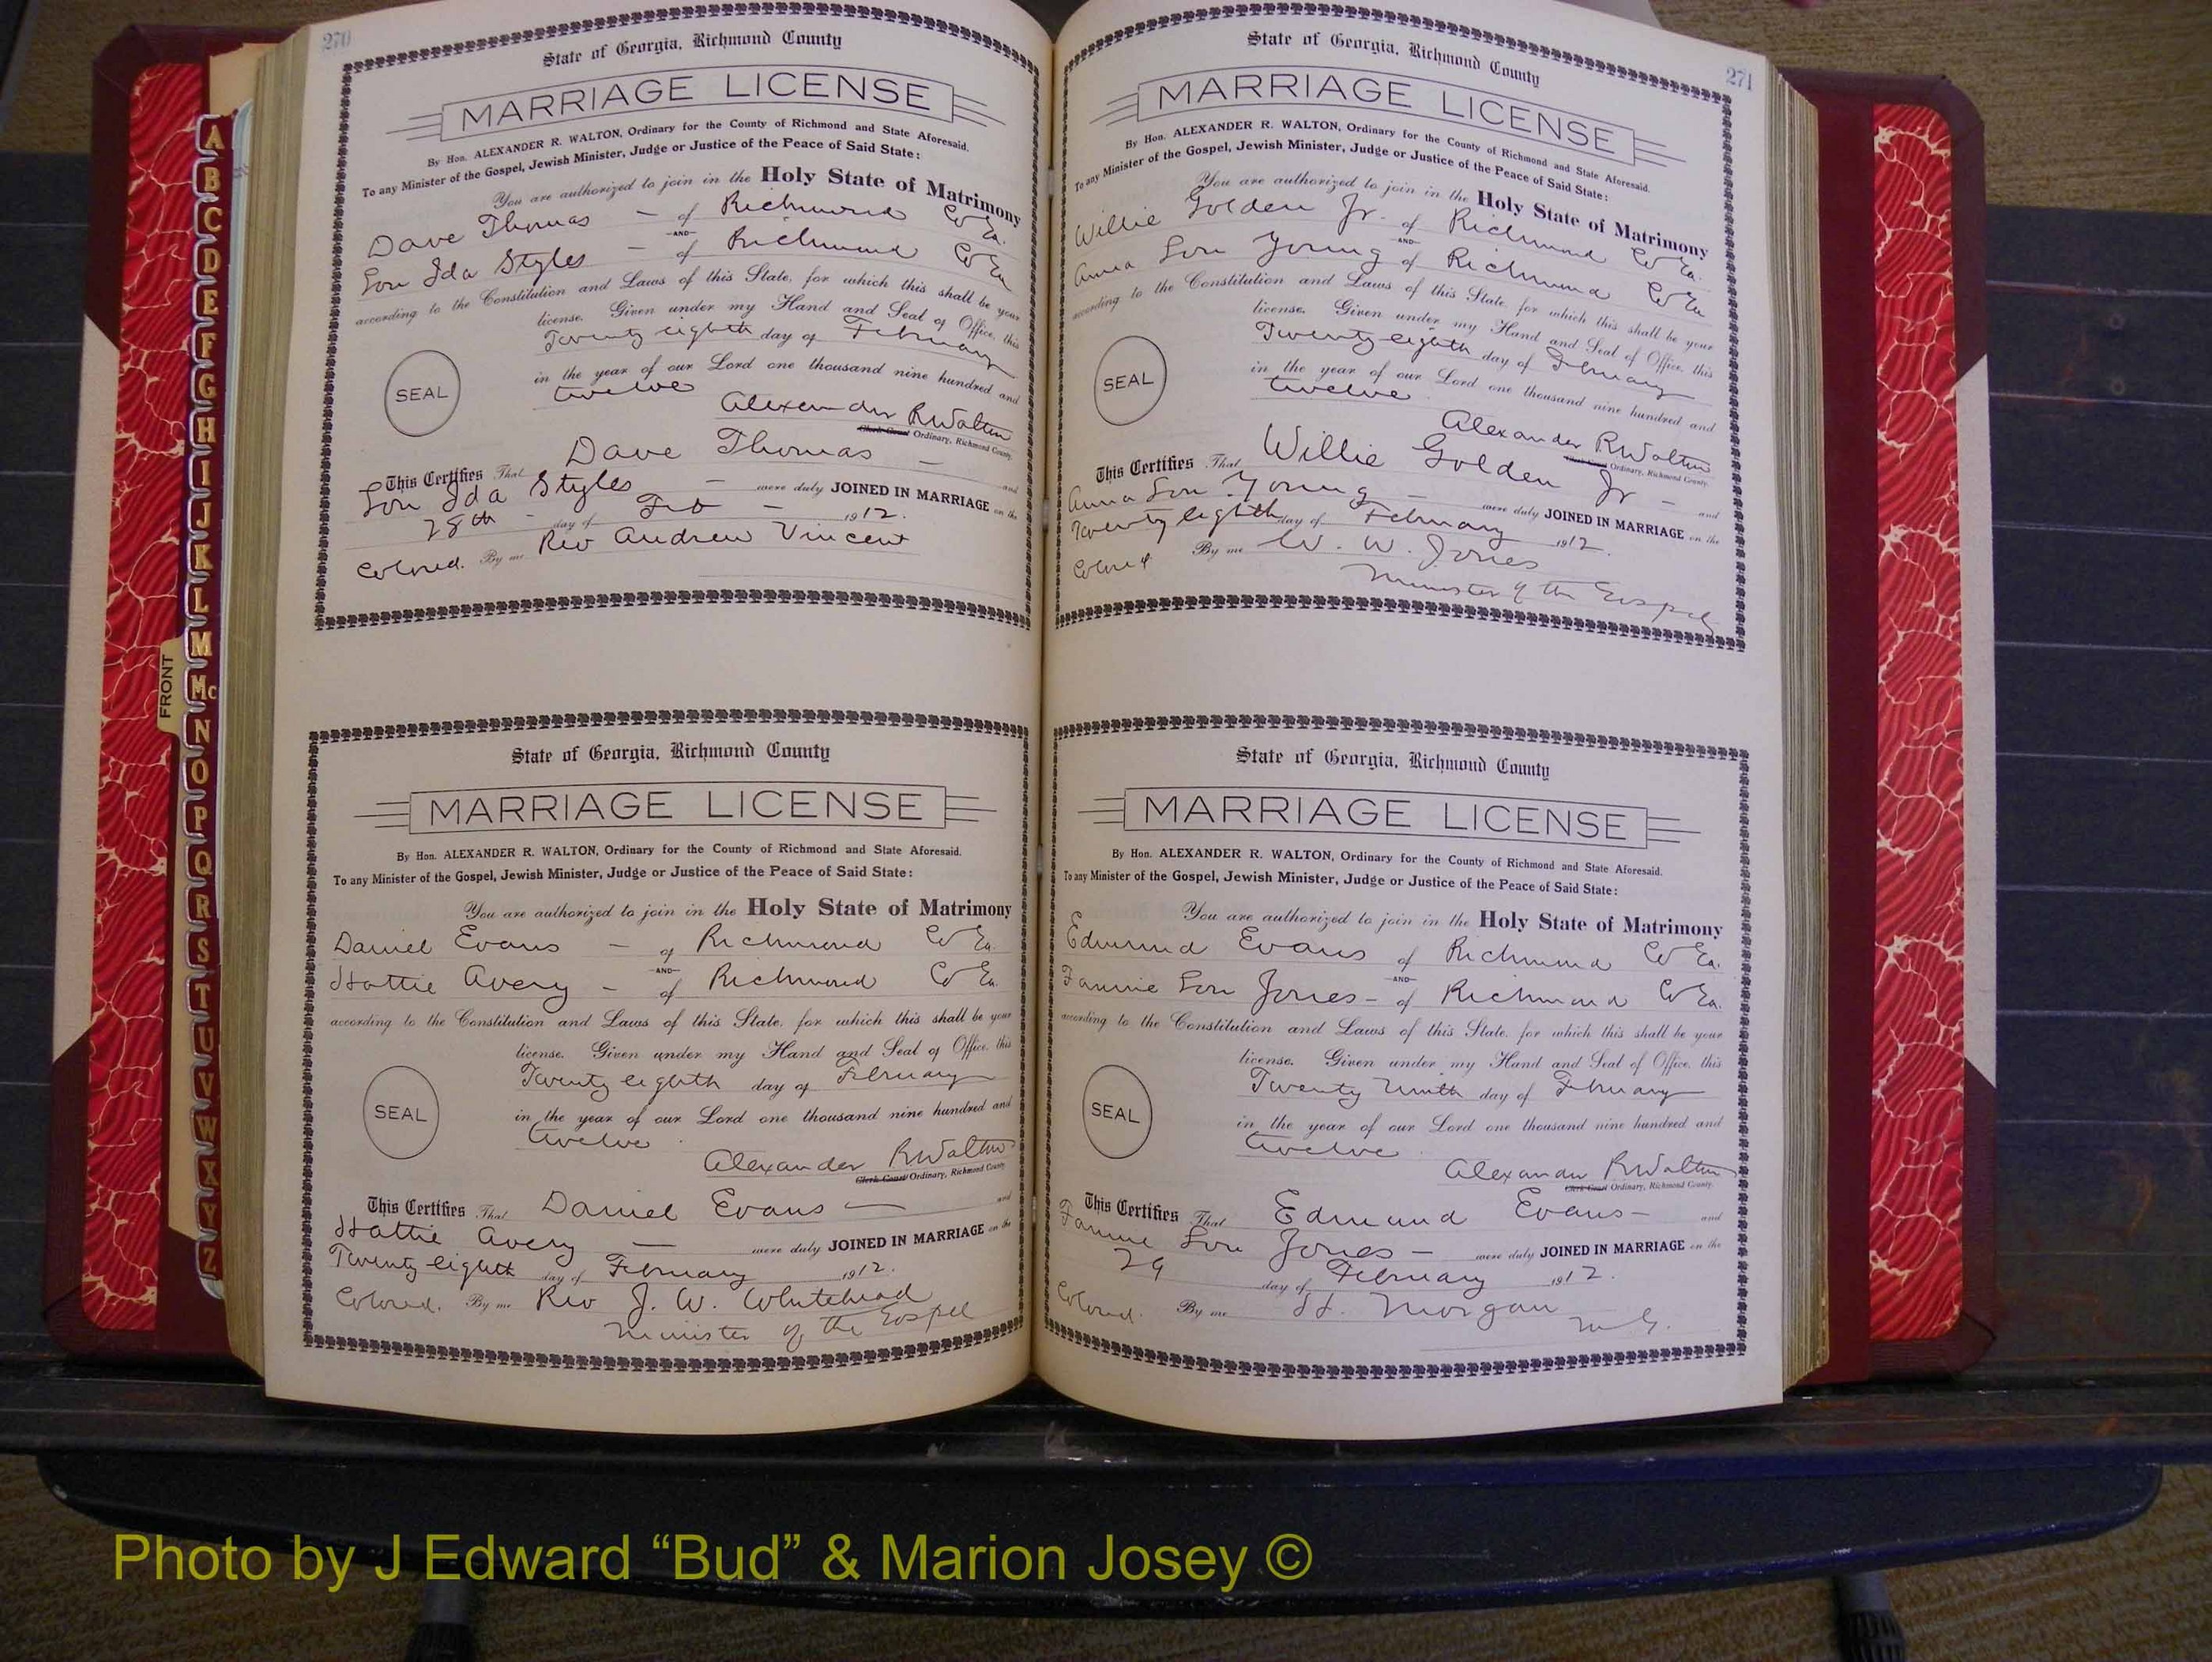 A
B
C
D
E
F
G
H
I
J
K
L
M
Mc
N
O
P
Q
R
S
T
U
V
W
X
Y
Z
FRONT
270
State of Georgia, Richmond County
MARRIAGE LICENSE
By Hon. ALEXANDER R. WALTON, Ordinary for the County of Richmond and State Aforesaid.
To any Minister of the Gospel, Jewish Minister, Judge or Justice of the Peace of Said State:
You are authorized to join in the Holy State of Matrimony
Dave Thomas - of Richmond Co Ga.
AND
Lou Ida Styles - of Richmond Co Ga
according to the Constitution and Laws of this State, for which this shall be your
license. Given under my Hand and Seal of Office, this
Twenty eighth day of February
SEAL
in the year of our Lord one thousand nine hundred and
twelve
Alexander R Walton
Clerk Court Ordinary, Richmond County.
This Certifies That Dave Thomas - and
Lou Ida Styles - were duly JOINED IN MARRIAGE on the
28th - day of Feb - 1912.
Colored. By me Rev Andrew Vincent
State of Georgia, Richmond County
MARRIAGE LICENSE
By Hon. ALEXANDER R. WALTON, Ordinary for the County of Richmond and State Aforesaid.
To any Minister of the Gospel, Jewish Minister, Judge or Justice of the Peace of Said State:
You are authorized to join in the Holy State of Matrimony
Daniel Evans - of Richmond Co Ga.
AND
Hattie Avery - of Richmond Co Ga.
according to the Constitution and Laws of this State, for which this shall be your
license. Given under my Hand and Seal of Office, this
Twenty eighth day of February
SEAL
in the year of our Lord one thousand nine hundred and
twelve
Alexander R Walton
Clerk Court Ordinary, Richmond County
This Certifies That Daniel Evans - and
Hattie Avery - were duly JOINED IN MARRIAGE on the
Twenty eighth day of February 1912.
Colored. By me Rev J. W. Whitehead
Minister of the Gospel
271
State of Georgia, Richmond County
MARRIAGE LICENSE
By Hon. ALEXANDER R. WALTON, Ordinary for the County of Richmond and State Aforesaid.
To any Minister of the Gospel, Jewish Minister, Judge or Justice of the Peace of Said State:
You are authorized to join in the Holy State of Matrimony
Willie Golden Jr. of Richmond Co Ga.
AND
Anna Lou Young of Richmond Co Ga
according to the Constitution and Laws of this State, for which this shall be your
license. Given under my Hand and Seal of Office, this
Twenty eighth day of February
SEAL
in the year of our Lord one thousand nine hundred and
twelve
Alexander R Walton
Clerk Court Ordinary, Richmond County.
This Certifies That Willie Golden Jr - and
Anna Lou Young - were duly JOINED IN MARRIAGE on the
Twenty eighth day of February 1912.
Colored By me W. W. Jones
Minister of the Gospel
State of Georgia, Richmond County
MARRIAGE LICENSE
By Hon. ALEXANDER R. WALTON, Ordinary for the County of Richmond and State Aforesaid.
To any Minister of the Gospel, Jewish Minister, Judge or Justice of the Peace of Said State:
You are authorized to join in the Holy State of Matrimony
Edmund Evans of Richmond Co Ga.
AND
Fannie Lou Jones - of Richmond Co Ga.
according to the Constitution and Laws of this State, for which this shall be your
license. Given under my Hand and Seal of Office, this
Twenty Ninth day of February
SEAL
in the year of our Lord one thousand nine hundred and
twelve
Alexander R Walton
Clerk Court Ordinary, Richmond County.
This Certifies That Edmund Evans - and
Fannie Lou Jones - were duly JOINED IN MARRIAGE on the
29 day of February 1912.
Colored. By me H. Morgan
M G.
Photo by J Edward “Bud” & Marion Josey ©